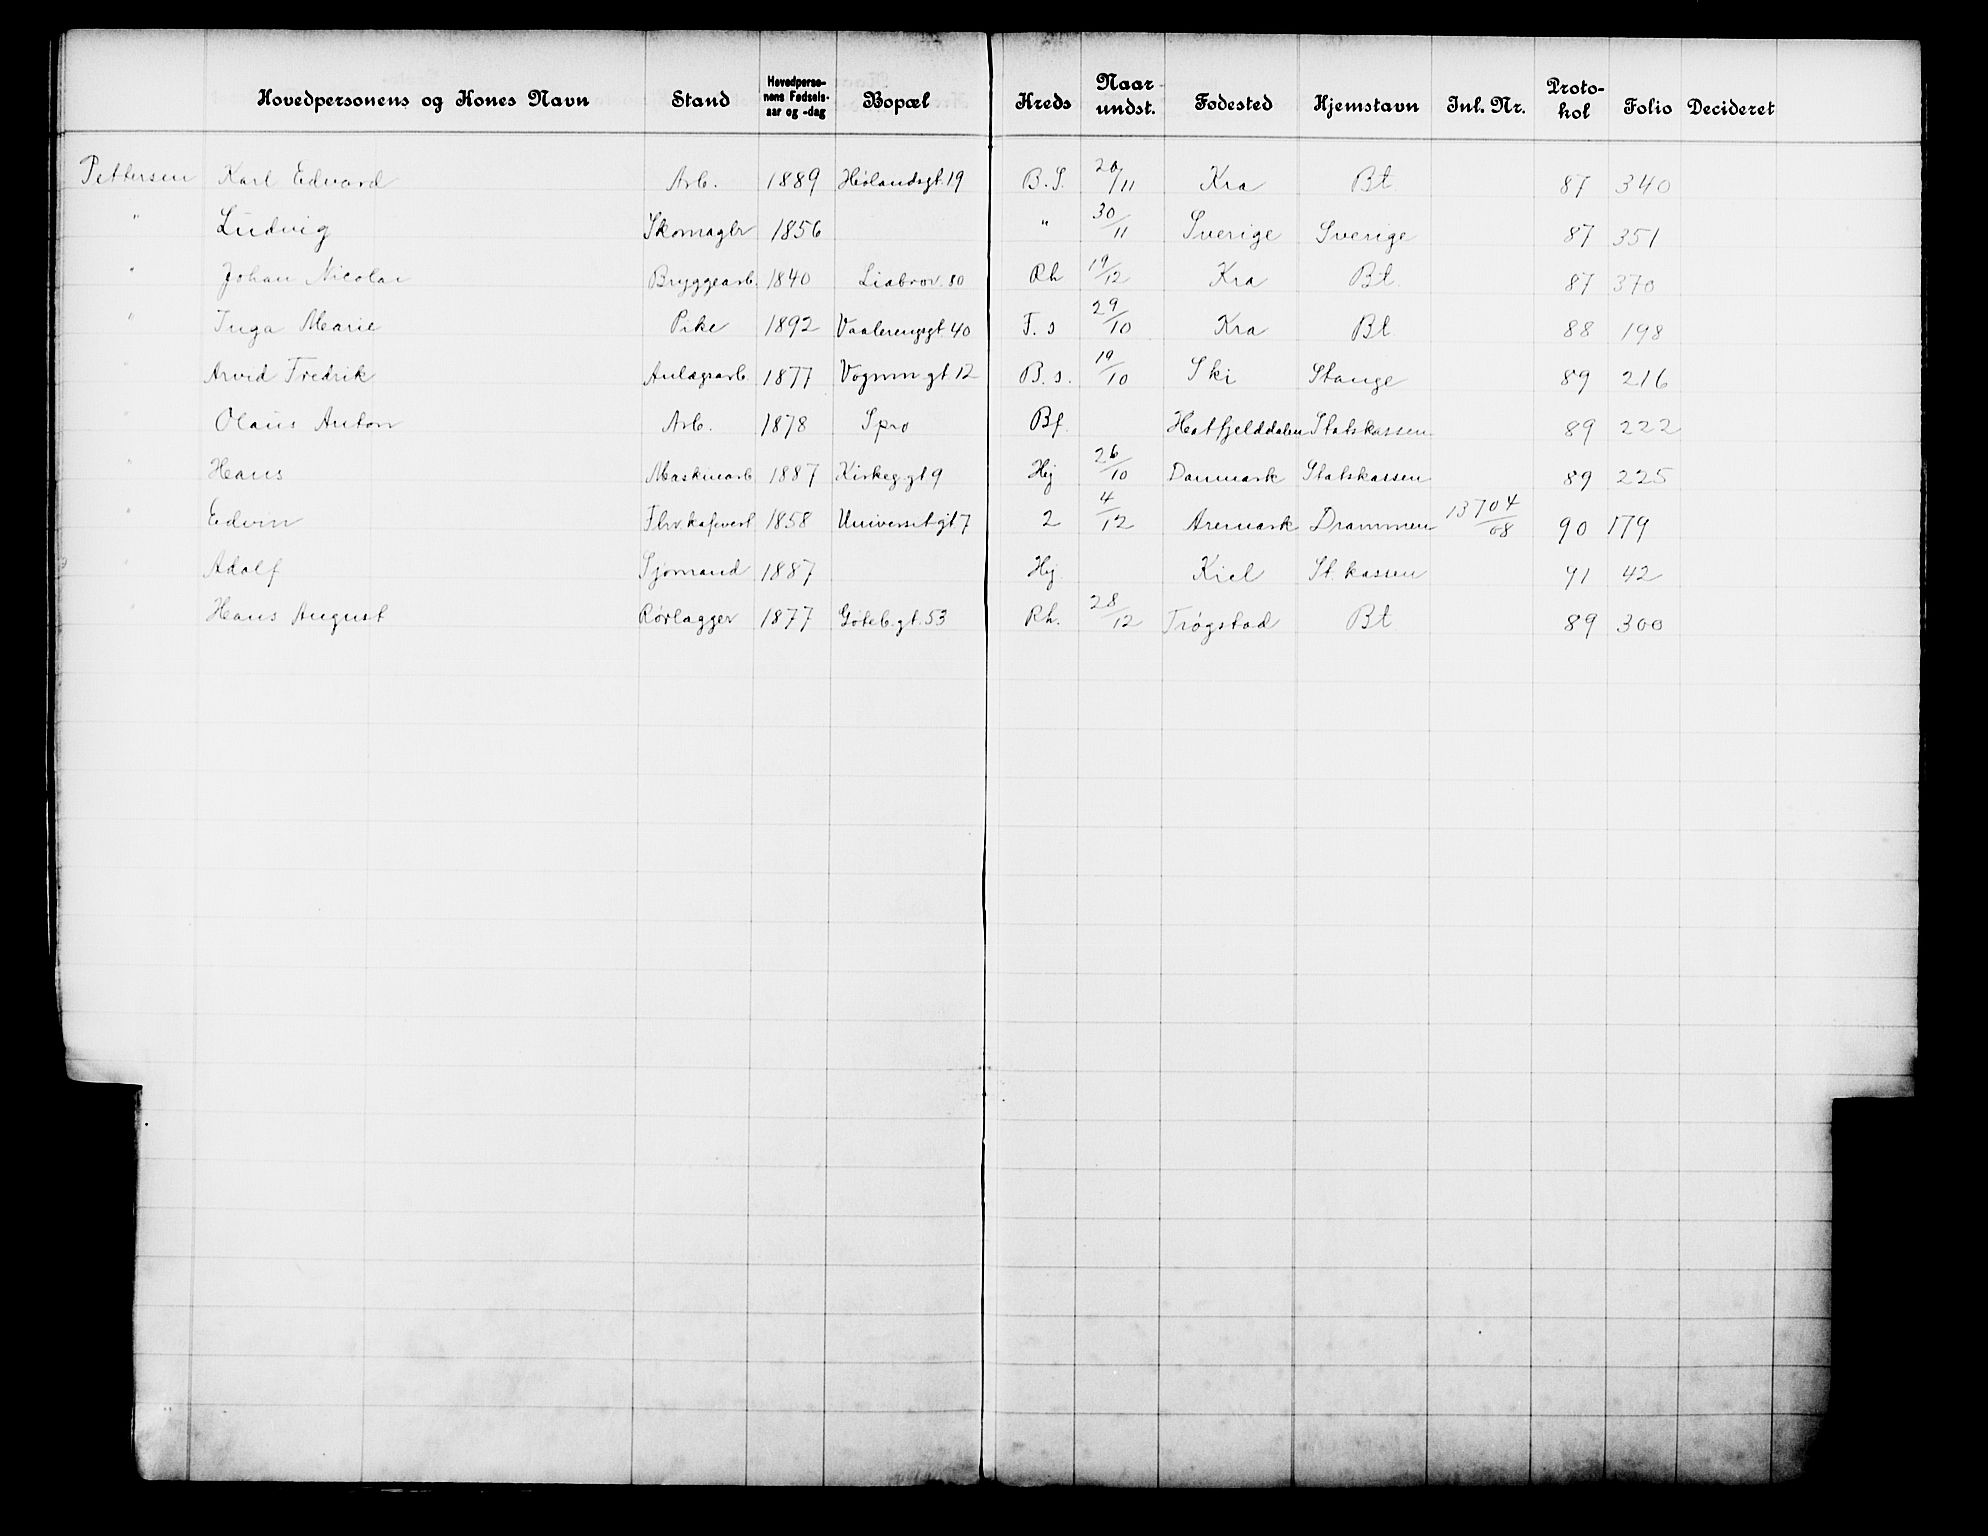 Hovedpersonens og Kones Navn | Stand | Hovedpersonens Fødsels-aar og -dag | Bopæl | Kreds | Naar undst. | Fødested | Hjemstavn | Inl. Nr. | Protokol | Folio | Decideret
Pettersen Karl Edvard | Arb. | 1889 | Hølandsgt. 19 | B. S. | 20/11 | Kra | Bt | | 87 | 340
" Ludvig | Skomagbr | 1856 | | " | 30/11 | Sverige | Sverige | | 87 | 351
" Johan Nicolai | Bryggearb. | 1840 | Liabrov. 80 | Rh | 19/12 | Kra | Bt. | | 87 | 370
" Inga Marie | Pike | 1892 | Vaalerenggt. 40 | F. s | 29/10 | Kra | Bt. | | 88 | 198
" Arvid Fredrik | Anlægsarb. | 1877 | Vognm gt 12 | B. s. | 19/10 | Ski | Stange | | 89 | 216
" Olaus Anton | Arb. | 1878 | Spro | Bf. | | Hatfjelddalen | Statskassen | | 89 | 222
" Hans | Maskinarb | 1887 | Kirkeg. gt 9 | Hej | 26/10 | Danmark | Statskassen | | 89 | 225
" Edvin | Fhv. kafevert | 1858 | Universit. gt 7 | 2 | 4/12 | Aremark | Drammen | 13704/08 | 90 | 179
" Adolf | Sjømand | 1887 | | Hej | | Kiel | St. kassen | | 91 | 42
" Hans August | Rørlægger | 1877 | Gøteb. gt. 53 | Rh. | 28/12 | Trøgstad | Bt | | 89 | 300